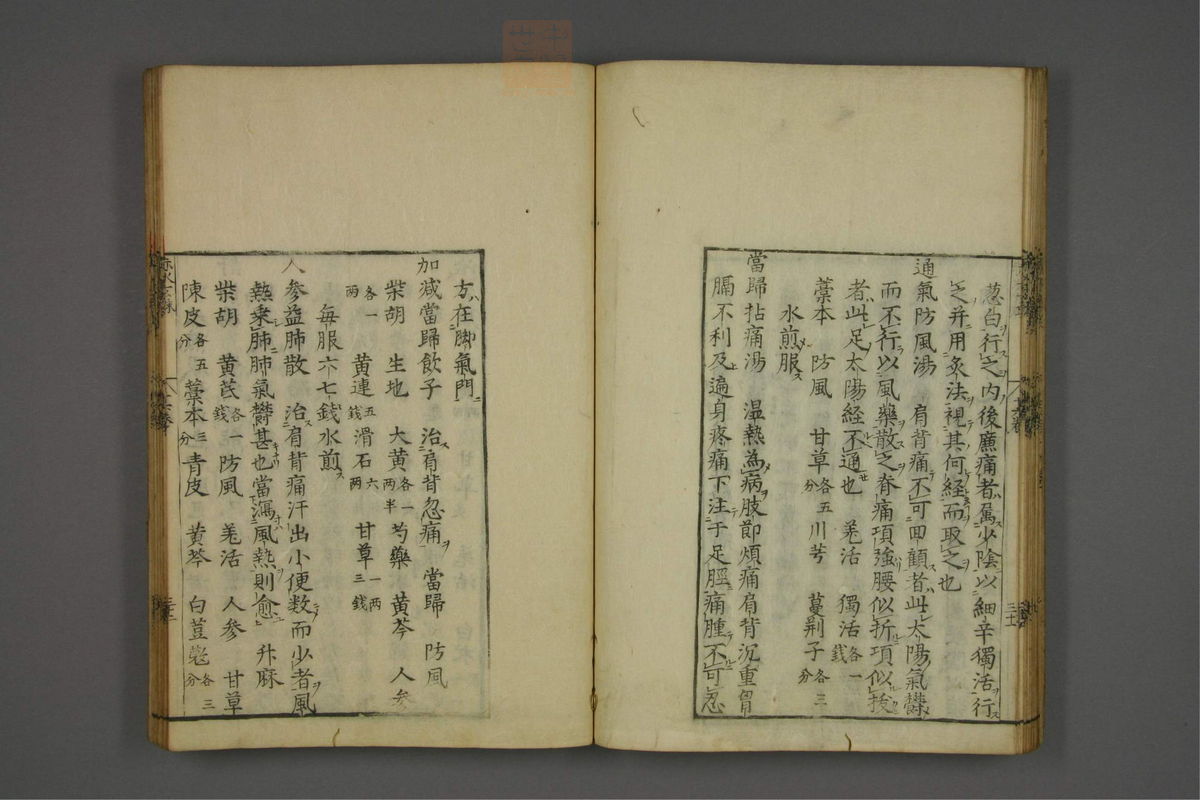 葱白行之内後廉痛者属少陰以細辛獨活行
之并用灸法視其何経而取之也
通氣防風湯　肩背痛不可回顧者此太陽氣欝
而不行以風藥散之脊痛項強腰似折項似拔
者此足太陽経不通也　羌活　獨活各一錢
藁本　防風　甘草各五分川芎　蔓荆子各三分
水煎服
當歸拈痛湯　温熱為病肢節煩痛肩背沉重胷
膈不利及遍身疼痛下注于足脛痛腫不可忍
方在脚氣門
加减當歸飲子　治肩背忽痛　當歸　防風
柴胡　生地　大黄各一两半芍藥　黄芩　人参
各一两　黄連五錢滑石六两　甘草一两三錢
每服六七錢水煎
人参益肺散　治肩背痛汗出小便数而少者風
熱乘肺肺氣欝甚也當瀉風熱則愈　升麻
柴胡　黄芪各一錢防風　羌活　人参　甘草
陳皮各五分藁本三分青皮　黄芩　白荳蔲各三分